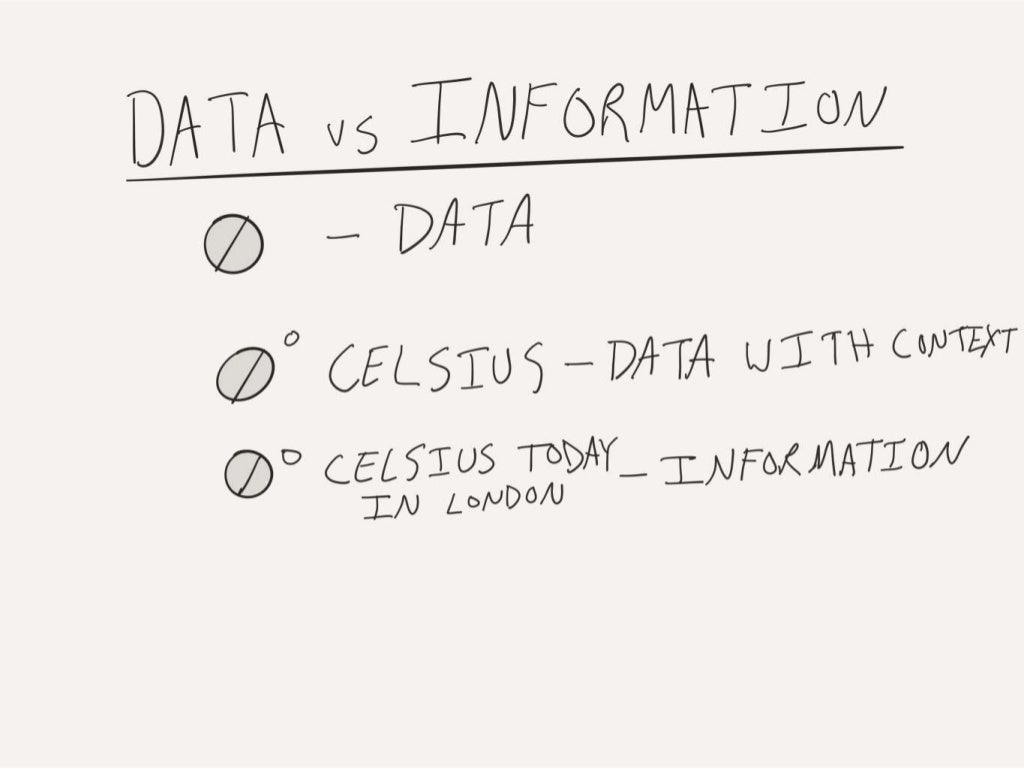 DATA vs INFORMATION
0 - DATA
0° CELSIUS - DATA WITH CONTEXT
0° CELSIUS TODAY - INFORMATION
IN LONDON